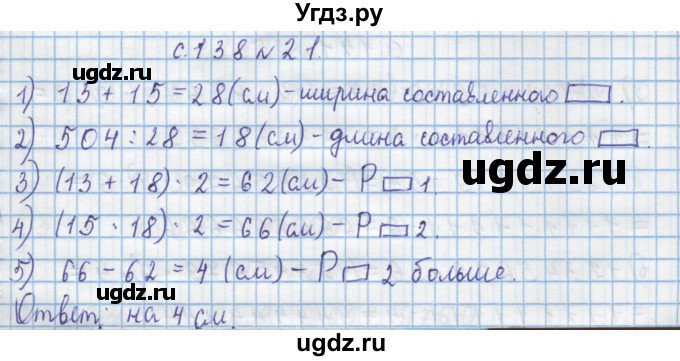 Угдз.ру
с.138 №21.
1) 15 + 15 = 28 (см) - ширина составленного ▭.
2) 504 : 28 = 18 (см) - длина составленного ▭.
3) (13 + 18) · 2 = 62 (см) - P ▭ 1.
4) (15 · 18) · 2 = 66 (см) - P ▭ 2.
5) 66 - 62 = 4 (см) - P ▭ 2 больше.
Ответ: на 4 см.
ugdz.ru
ugdz.ru
ugdz.ru
ugdz.ru
ugdz.ru
©ugdz.ru